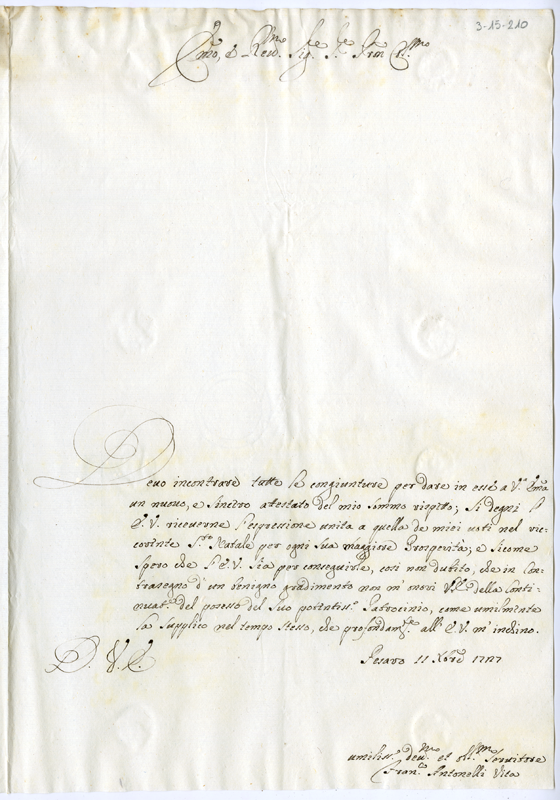 3-15-210
Em̃o, e Reu.mo Sig.re Sig.re Prõn Col.mo
Devo incontrare tutte le congiunture per dare in esse a V.ra Em̃a
un nuovo, e sincero atestato del mio sommo rispetto; si degni l'
E.V. riceverne l'espressione unita a quella de miei voti nel ric-
corente S.to Natale per ogni sua maggiore Prosperità; e sicome
spero che l'E.V. sia per conseguirle, così non dubito, che in Con-
trasegno d'un benigno gradimento non m'onori V.E. della Conti-
nuat.e del possesso del suo potentiss.o Patrocinio, come umilmente
la supplico nel tempo stesso, che profondam.te all'E.V. m'inchino.
D. V. E.
Pesaro 11 Xbre 1727
umiliss.o deu.mo et obl.mo Servitore
Fran.co Antonelli Vita